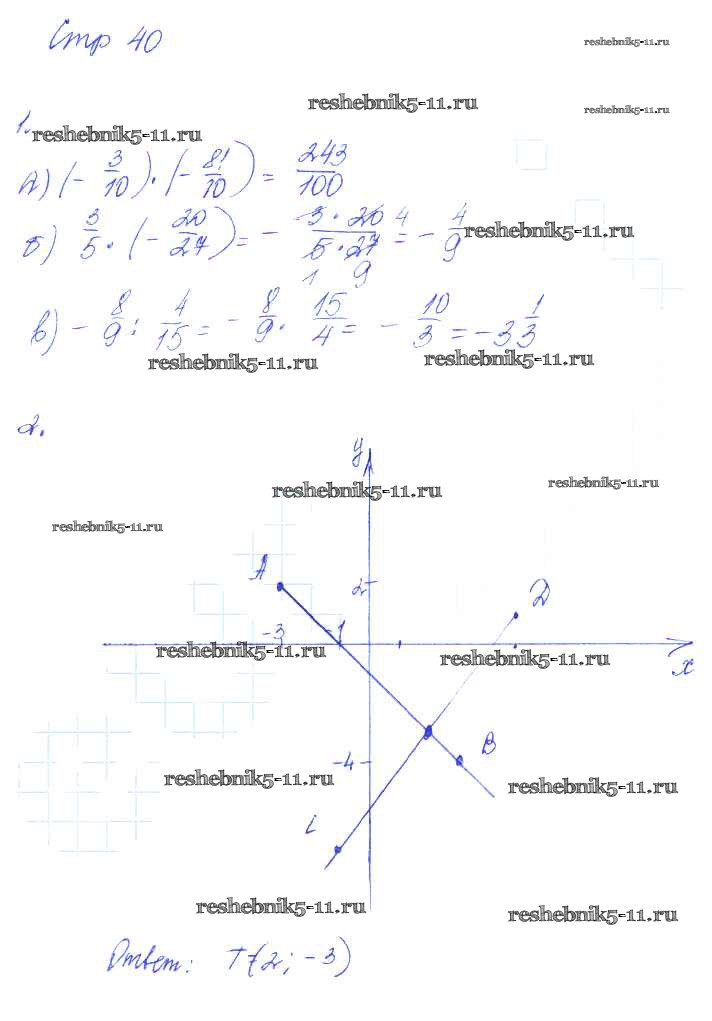 Стр 40
reshebnik5-11.ru
reshebnik5-11.ru
reshebnik5-11.ru
1.
reshebnik5-11.ru
а) (- 3/10) · (- 81/10) = 243/100
б) 3/5 · (- 20/27) = - 3 · 20 4 / 5 · 27 = - 4/9
1 9
reshebnik5-11.ru
в) - 8/9 : 4/15 = - 8/9 · 15/4 = - 10/3 = -3 1/3
reshebnik5-11.ru
reshebnik5-11.ru
2.
y
reshebnik5-11.ru
reshebnik5-11.ru
reshebnik5-11.ru
A
2
D
-3
-1
reshebnik5-11.ru
reshebnik5-11.ru
x
B
-4
reshebnik5-11.ru
reshebnik5-11.ru
reshebnik5-11.ru
reshebnik5-11.ru
Ответ: T(2; -3)